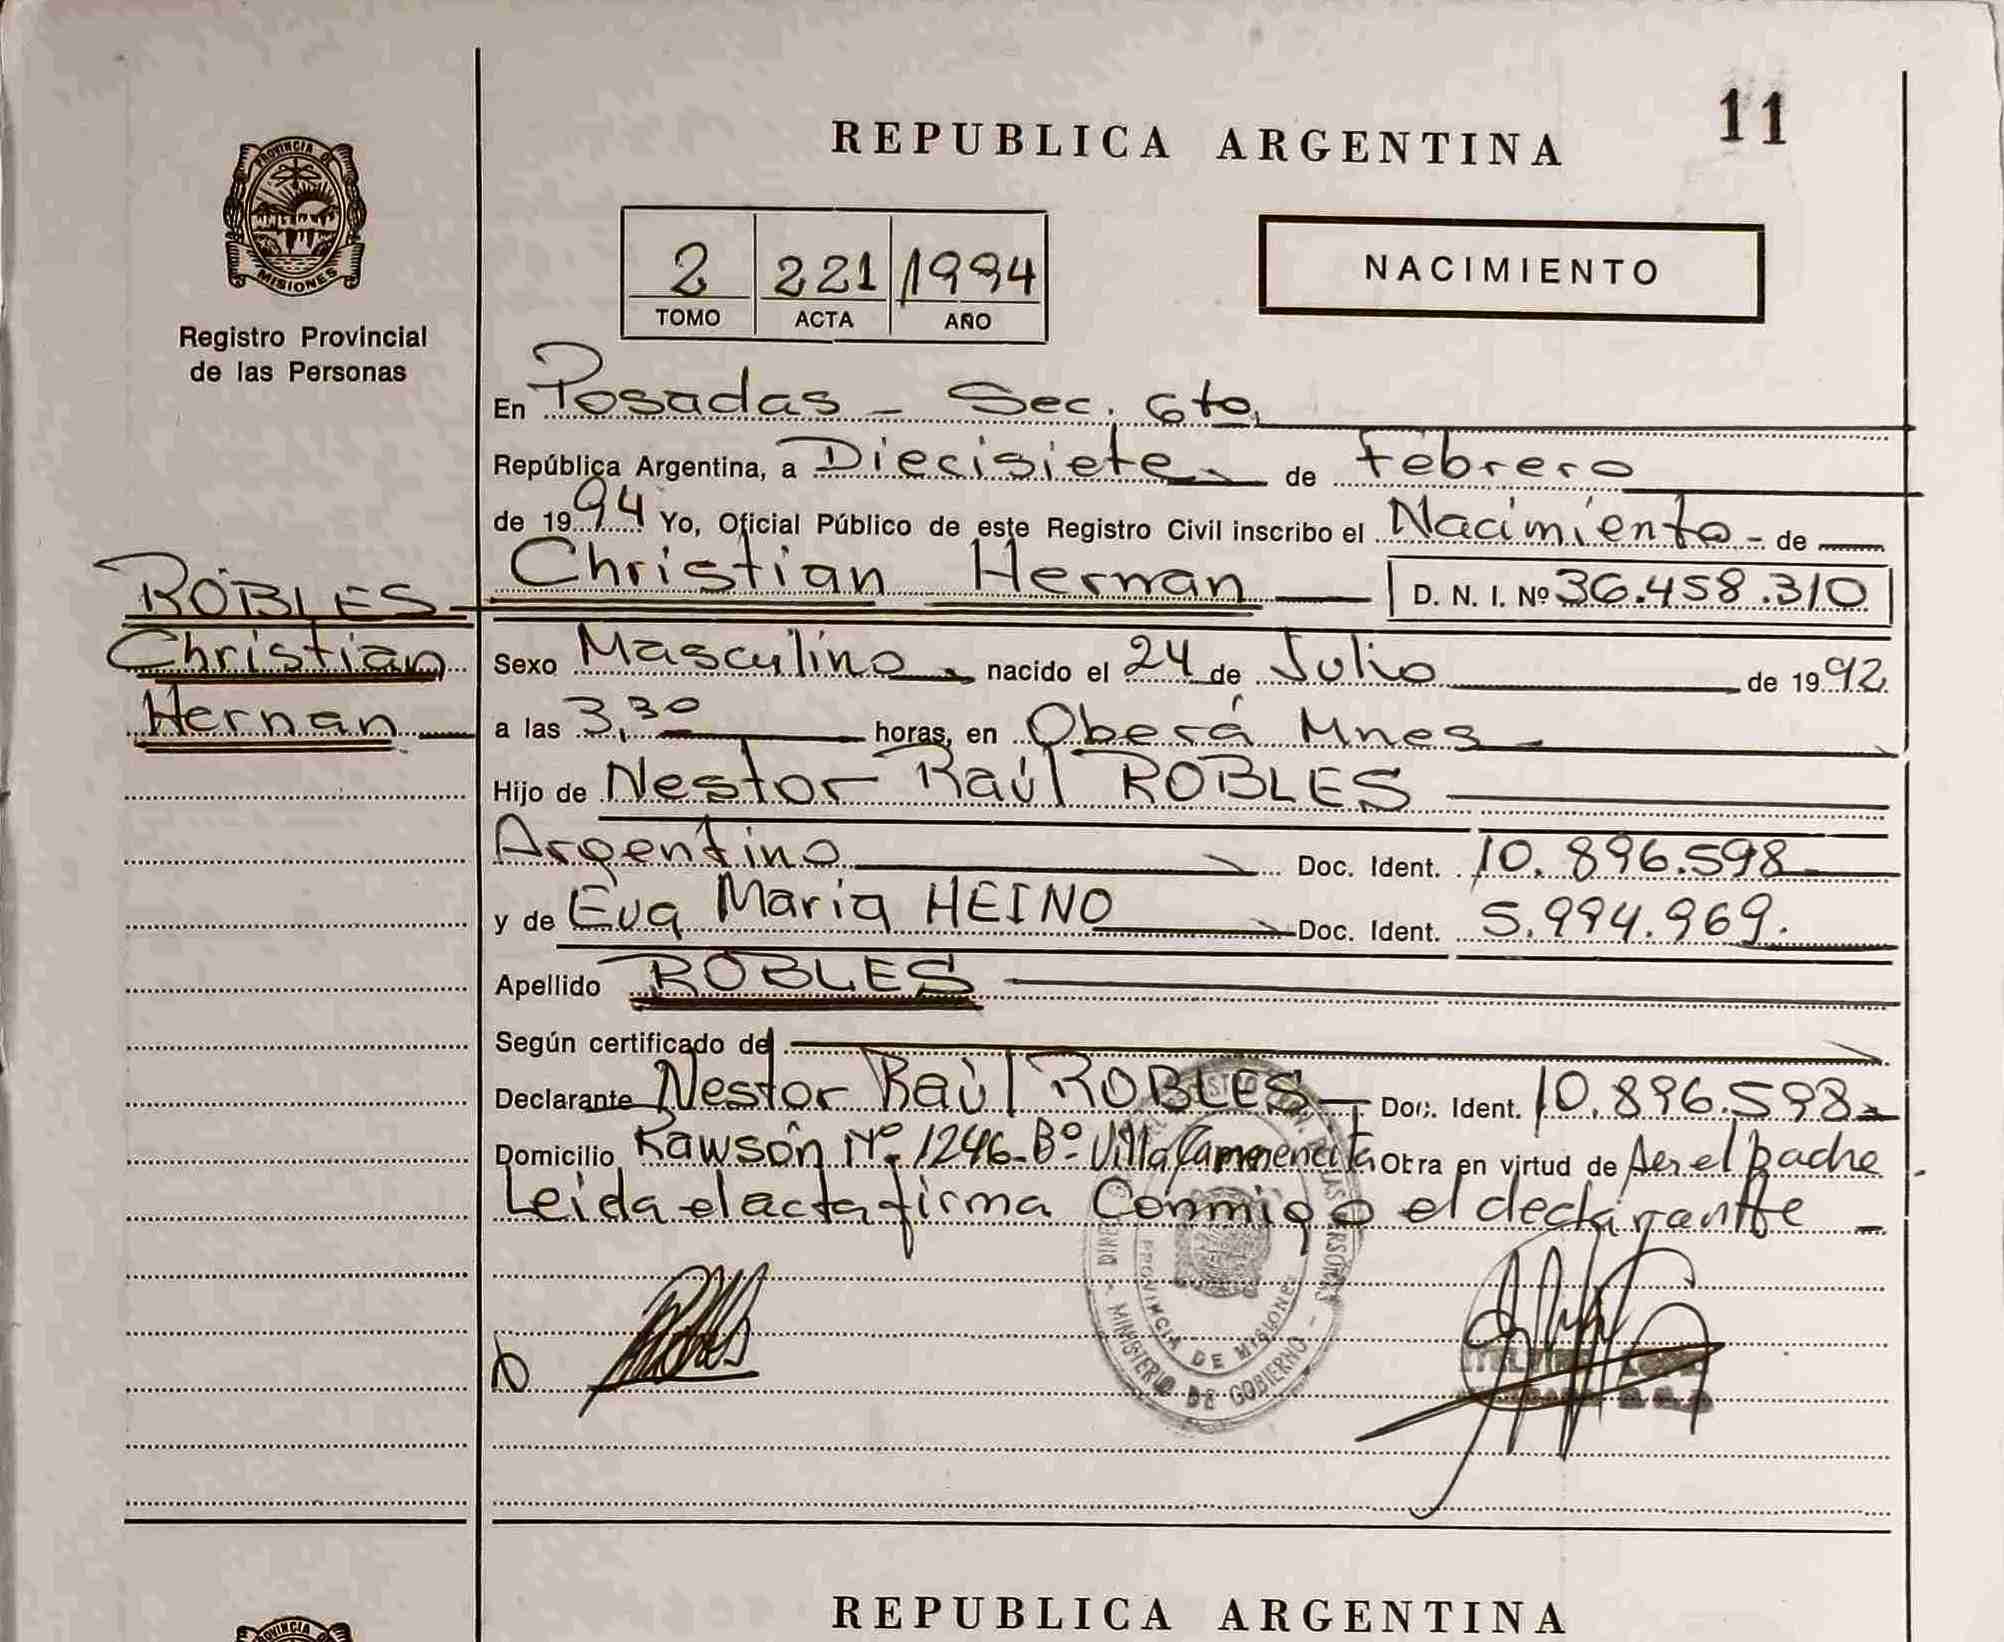 11
REPUBLICA ARGENTINA
PROVINCIA DE
MISIONES
Registro Provincial
de las Personas
2 221 1994
TOMO ACTA AÑO
NACIMIENTO
En Posadas - Sec. 6to.
República Argentina, a Diecisiete de Febrero
de 1994 Yo, Oficial Público de este Registro Civil inscribo el Nacimiento - de
ROBLES
Christian
Hernan
Christian Hernan D. N. I. Nº 36.458.310
Sexo Masculino nacido el 24 de Julio de 1992
a las 3,30 horas, en Oberá Mnes
Hijo de Nestor Raúl ROBLES
Argentino Doc. Ident. 10.896.598
y de Eva Maria HEINO Doc. Ident. 5.994.969.
Apellido ROBLES
Según certificado de
Declarante Nestor Raúl ROBLES Doc. Ident. 10.896.598
Domicilio Rawson Nº 1246-Bº Villa Obra en virtud de ser el padre
Leida el acta firma Conmigo el declarante
PROVINCIA DE MISIONES
MINISTERIO DE GOBIERNO
REPUBLICA ARGENTINA
PROVINCIA DE